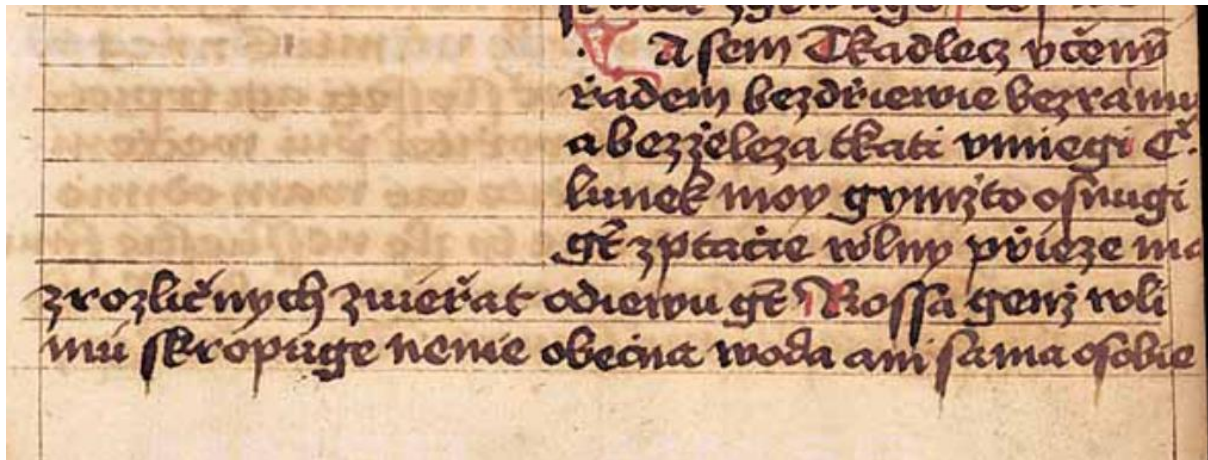 a sem Tkadlecz včený
řadem bezdřiewie bezramu
a bezżeleza tkati vmiegi Cż
lunek moy gymżto osnugi
gt̄ zptačie wlny přieze ma
zrozličnych zwieřat odiewu gt̄ Rossa genż roli
mú skropuge nenie obecna woda ani sama osobie